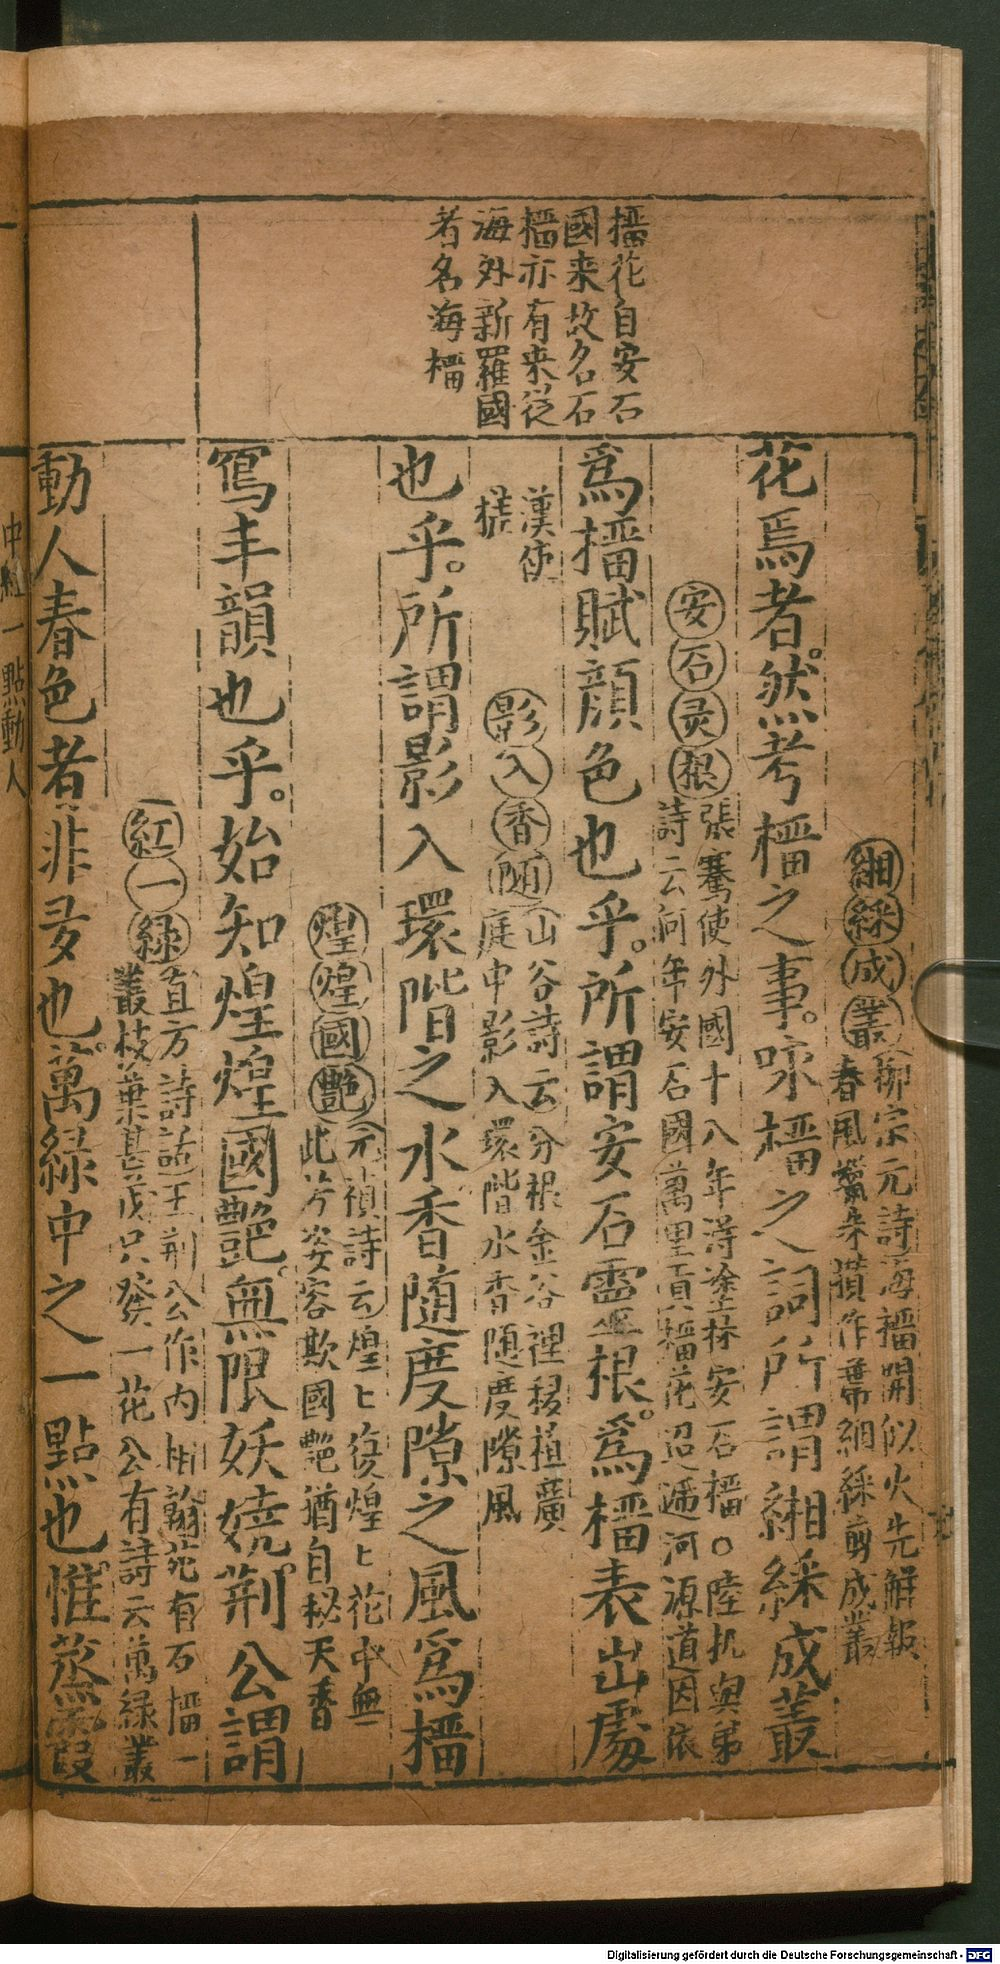 榴花自安石
國来故名石
榴亦有来從
海外新羅國
者名海榴
緗綵成叢
柳宗元詩海榴開似火先解報
春風 作 緗綵剪成叢
花焉者。然考榴之事。咏榴之詞所謂緗綵成叢
安石灵根
張騫使外國十八年淂塗林安石榴〇陸机與弟
詩云何年安石國萬里貢榴花迢遞河源道因依
漢使
槎
爲榴賦顔色也乎。所謂安石靈根。爲榴表出處
影入香随
山谷詩云分根金谷裡移植廣
庭中影入環階水香随度隙風
也乎。所謂影入環階之水香隨度隙之風爲榴
煌煌國艶
元稹詩云煌〻復煌〻花中無
此芳姿容欺國艶猶自秘天香
寫丰韻也乎。始知煌煌國艷。無限妖嬈。荆公謂
紅一綠
直方詩話王荆公作内相翰苑有石榴一
叢枝葉甚茂只發一花公有詩云萬緑叢
中紅一點動人
動人春色者非多也。萬緑中之一點也。惟蒸霞
Digitalisierung gefördert durch die Deutsche Forschungsgemeinschaft - DFG